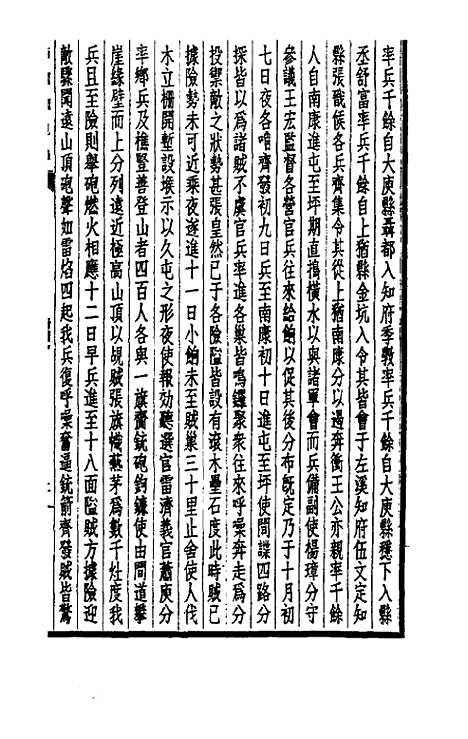 率兵千餘自大庾縣聶都入知府季斆率兵千餘自大庾縣穩下入縣
丞舒富率兵千餘自上猶縣金坑入令其皆會于左溪知府伍文定知
縣張戩候各兵齊集令其從上猶南康分以遏奔衝王公亦親率千餘
人自南康進屯至坪期直搗橫水以與諸軍會而兵備副使楊璋分守
參議王宏監督各營官兵往來給餉以促其後分布既定乃于十月初
七日夜各哨齊發初九日兵至南康初十日進屯至坪使間諜四路分
探皆以爲諸賊不虞官兵率進各巢皆鳴鑼聚衆往來呼噪奔走爲分
投禦敵之狀勢甚張皇然已于各險隘皆設有滾木壘石度此時賊已
據險勢未可近乘夜遂進十一日小餉未至賊巢三十里止舍使人伐
木立柵開塹設堠示以久屯之形夜使報効聽選官雷濟義官蕭庾分
率鄉兵及樵豎善登山者四百人各與一旗齎銃砲鉤鐮使由間道攀
崖緣壁而上分列遠近極高山頂以覘賊張旗幟爇茅爲數千灶度我
兵且至險則舉砲燃火相應十二日早兵進至十八面隘賊方據險迎
敵驟聞遠山頂砲聲如雷焰四起我兵復呼噪奮逼銃箭齊發賊皆驚